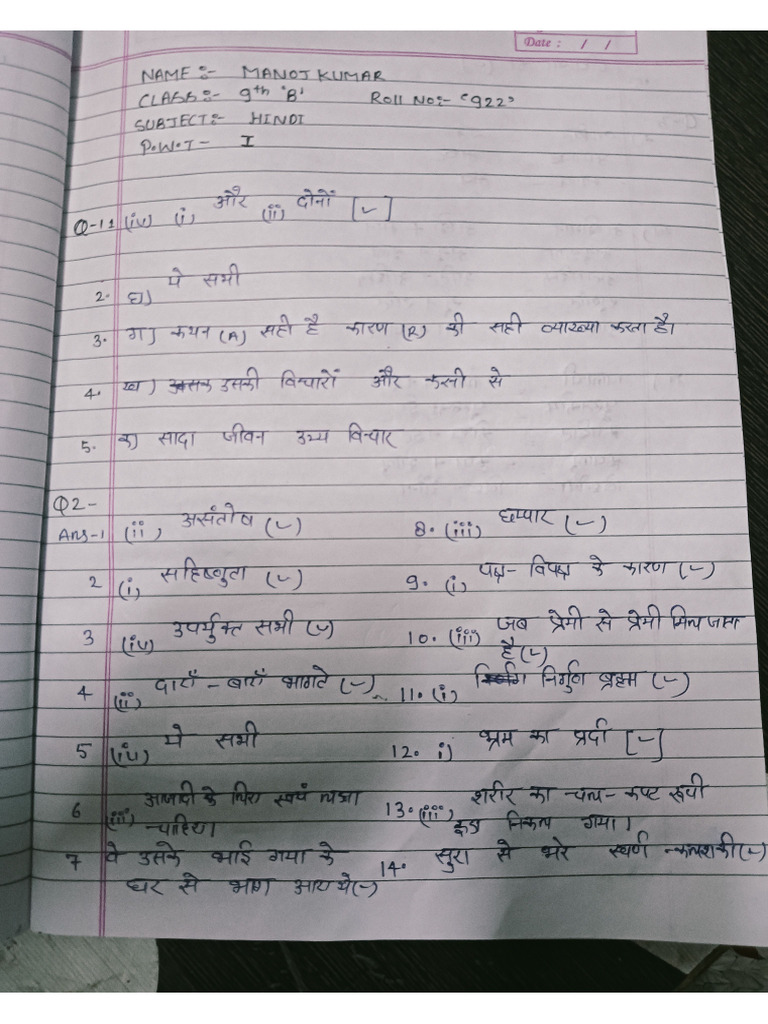 Date : / /
NAME :- MANOJ KUMAR
CLASS :- 9th 'B' Roll No:- '922'
SUBJECT:- HINDI
P.W.T - I
Q-1 1 (iv) (i) और (ii) दोनों [✓]
2. घ) ये सभी
3. ग) कथन (A) सही है कारण (R) की सही व्याख्या करता है।
4. ख) उसकी विचारों और कसी से
5. क) सादा जीवन उच्च विचार
Q2-
Ans-1 (ii) असंतोष (✓)
2 (i) सहिष्णुता (✓)
3 (iv) उपर्युक्त सभी (✓)
4 (ii) दाएँ - बाएँ भागते (✓)
5 (iv) ये सभी
6 (iii) आजादी के लिए स्वयं
चाहिए।
7 वे उसके भाई गया के
घर से भाग आए थे (✓)
8. (iii) छप्पार (✓)
9. (i) पक्ष - विपक्ष के कारण (✓)
10. (iii) जब प्रेमी से प्रेमी मिल जाता
है (✓)
11. (i) निर्गुण ब्रह्म (✓)
12. i) भ्रम का पर्दा [✓]
13. (iii) शरीर का - कपट रूपी
कूड़ा निकल गया।
14. सुरा से भरे स्वर्ण - कलश की (✓)